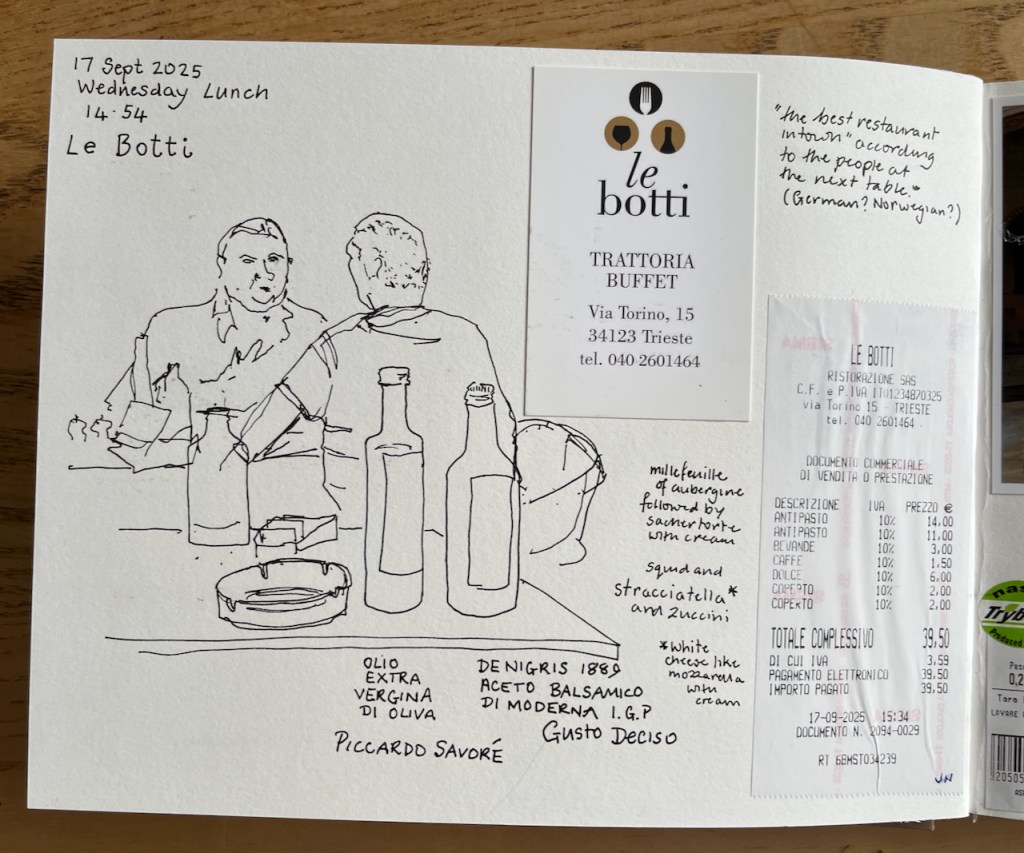 17 Sept 2025
Wednesday Lunch
14.54
Le Botti
le
botti
TRATTORIA
BUFFET
Via Torino, 15
34123 Trieste
tel. 040 2601464
"the best restaurant
in town" according
to the people at
the next table."
(German? Norwegian?)
LE BOTTI
RISTORAZIONE SAS
C.F. e P.IVA IT01234870325
via Torino 15 - TRIESTE
tel. 040 2601464
DOCUMENTO COMMERCIALE
DI VENDITA O PRESTAZIONE
DESCRIZIONE IVA PREZZO €
ANTIPASTO 10% 14,00
ANTIPASTO 10% 11,00
BEVANDE 10% 3,00
CAFFE 10% 1,50
DOLCE 10% 6,00
COPERTO 10% 2,00
COPERTO 10% 2,00
TOTALE COMPLESSIVO 39,50
DI CUI IVA 3,59
PAGAMENTO ELETTRONICO 39,50
IMPORTO PAGATO 39,50
17-09-2025 15:34
DOCUMENTO N. 2094-0029
RT 6BMST034239
millefeuille
of aubergine
followed by
sachertorte
with cream
squid and
stracciatella*
and zuccini
*white
cheese like
mozzarella
with
cream
OLIO
EXTRA
VERGINA
DI OLIVA
PICCARDO SAVORÉ
DE NIGRIS 1889
ACETO BALSAMICO
DI MODERNA I.G.P
GUSTO DECISO
nas
Tryb
Produced
0,2
Tara
LAVARE
20505